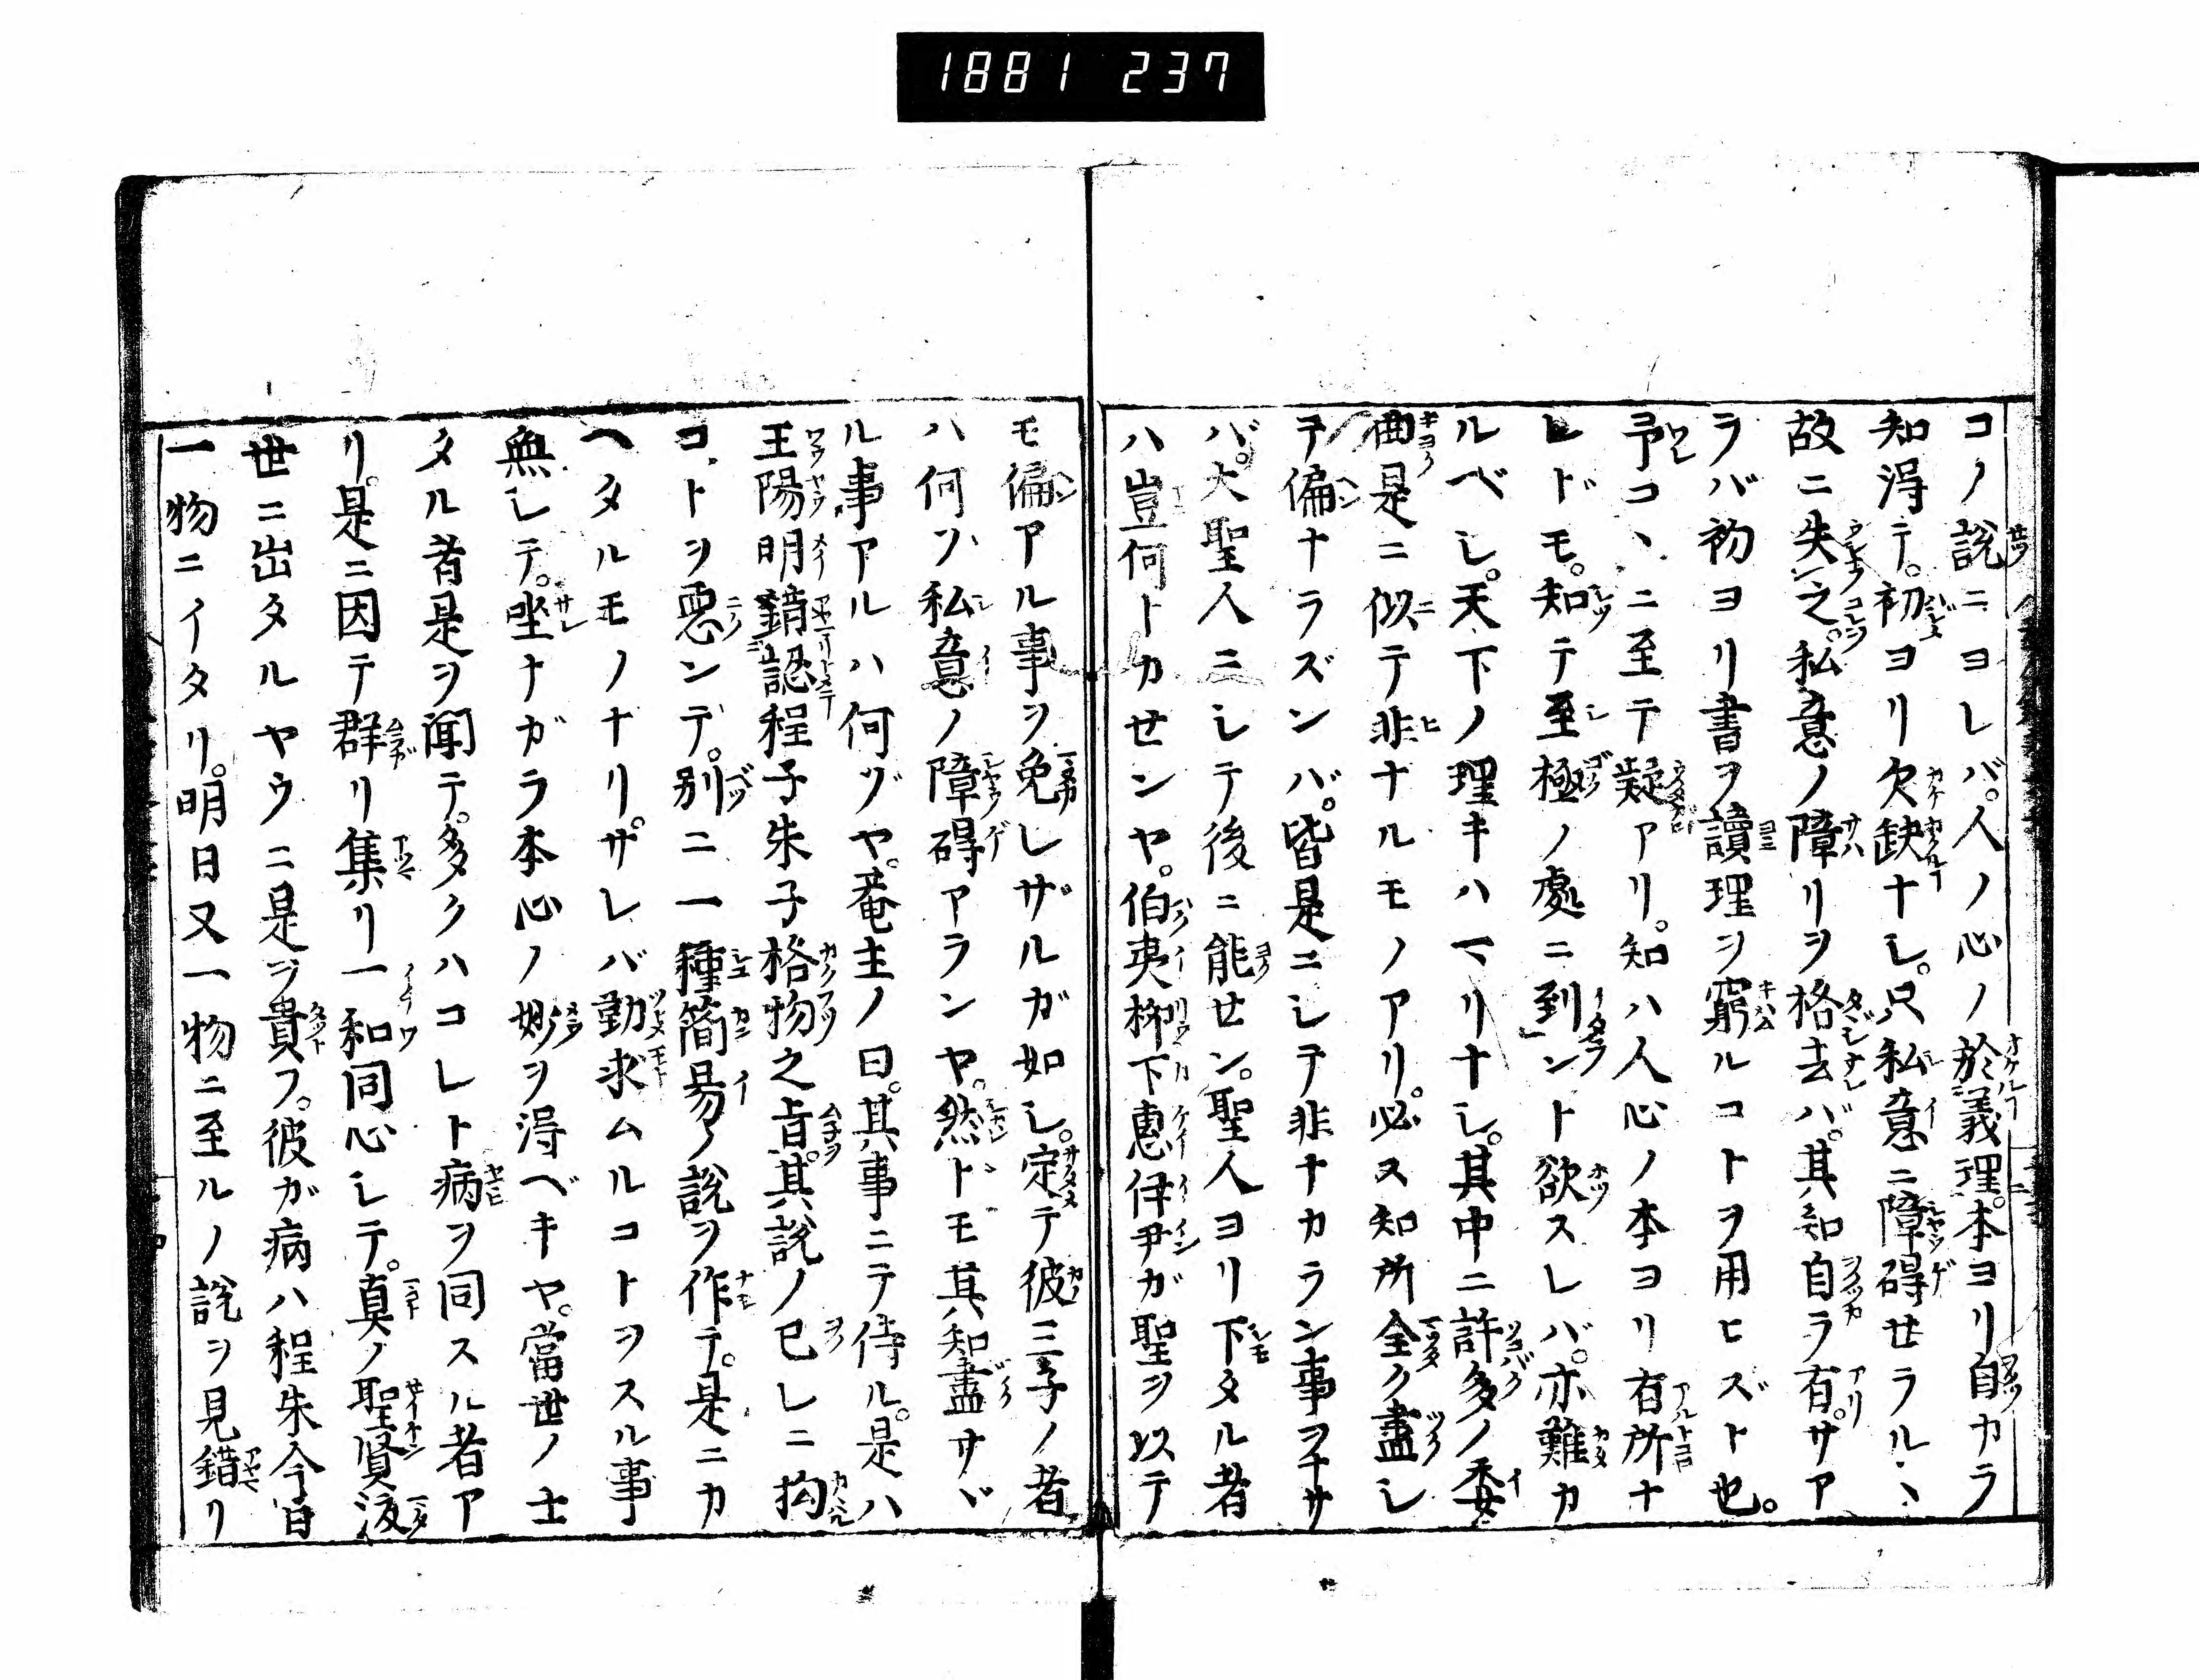 1881 237
コノ說ニヨレバ。人ノ心ノ於義理。本ヨリ自カラ
知得テ。初ヨリ欠缺ナシ。只私意ニ障碍せラル丶
故ニ失之。私意ノ障リヲ格去バ。其知自ラ有。サア
ラバ初ヨリ書ヲ讀理ヲ窮ルコトヲ用ヒズト也。
予コ丶ニ至テ疑アリ。知ハ人心ノ本ヨリ有所ナ
レドモ。知テ至極ノ處ニ到ント欲スレバ。亦難カ
ルベシ。天下ノ理キハマリナシ。其中ニ許多ノ委
曲是ニ似テ非ナルモノアリ。必ス知所全ク盡シ
テ偏ナラズンバ。皆是ニシテ非ナカラン事ヲ
バ。大聖人ニシテ後ニ能せン。聖人ヨリ下タル者
ハ豈何トカせンヤ。伯夷柳下惠伊尹ガ聖ヲ以テ
モ偏アル事ヲ免レザルガ如シ。定テ彼三子ノ者
ハ何ソ私意ノ障碍アランヤ。然トモ其知盡サヾ
ル事アルハ何ヅヤ。菴主ノ曰。其事ニテ侍ル。是ハ
王陽明錯認程子朱子格物之旨。其說ノ已レニ拘
コトヲ惡ンデ。別ニ一種簡易ノ說ヲ作テ。是ニカ
ヘタルモノナリ。サレバ勤求ムルコトヲスル事
無シテ。坐ナガラ本心ノ妙ヲ得ベキヤ。當世ノ士
タル者是ヲ聞テ。多クハコレト病ヲ同スル者ア
リ。是ニ因テ群リ集リ一和同心シテ。真ノ聖賢復
世ニ出タルヤウニ是ヲ貴フ。彼ガ病ハ程朱今日
一物ニイタリ。明日又一物ニ至ルノ說ヲ見錯リ